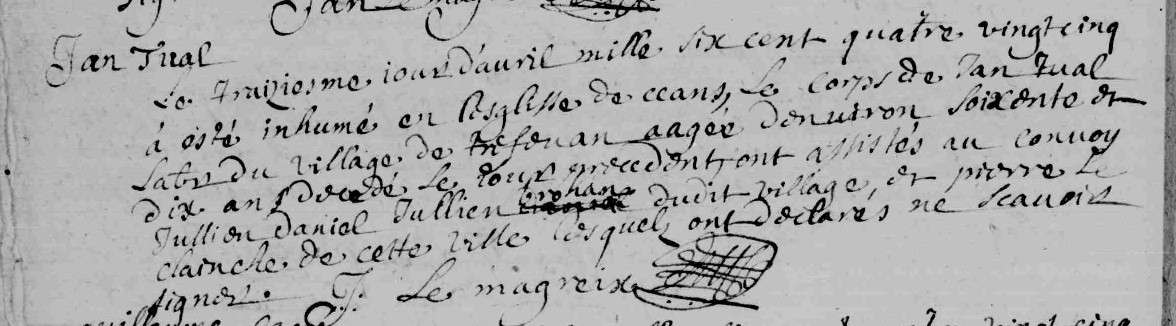 Jan Tual
Le traiziesme iour d'auril mille six cent quatre vingt cinq
à esté inhumé en lesglisse de ceans, Le corps de Jan Tual
Labr du village de trefeuan aagée denuiron soixente et
dix ans decedé Le iour precedent, ont assistés au conuoy
Jullien Daniel Jullien rohan dudit village, et pierre Le
clainche de cette ville lesquels ont declarés ne scauoir
signer. J. Le magreix
vingt cinq